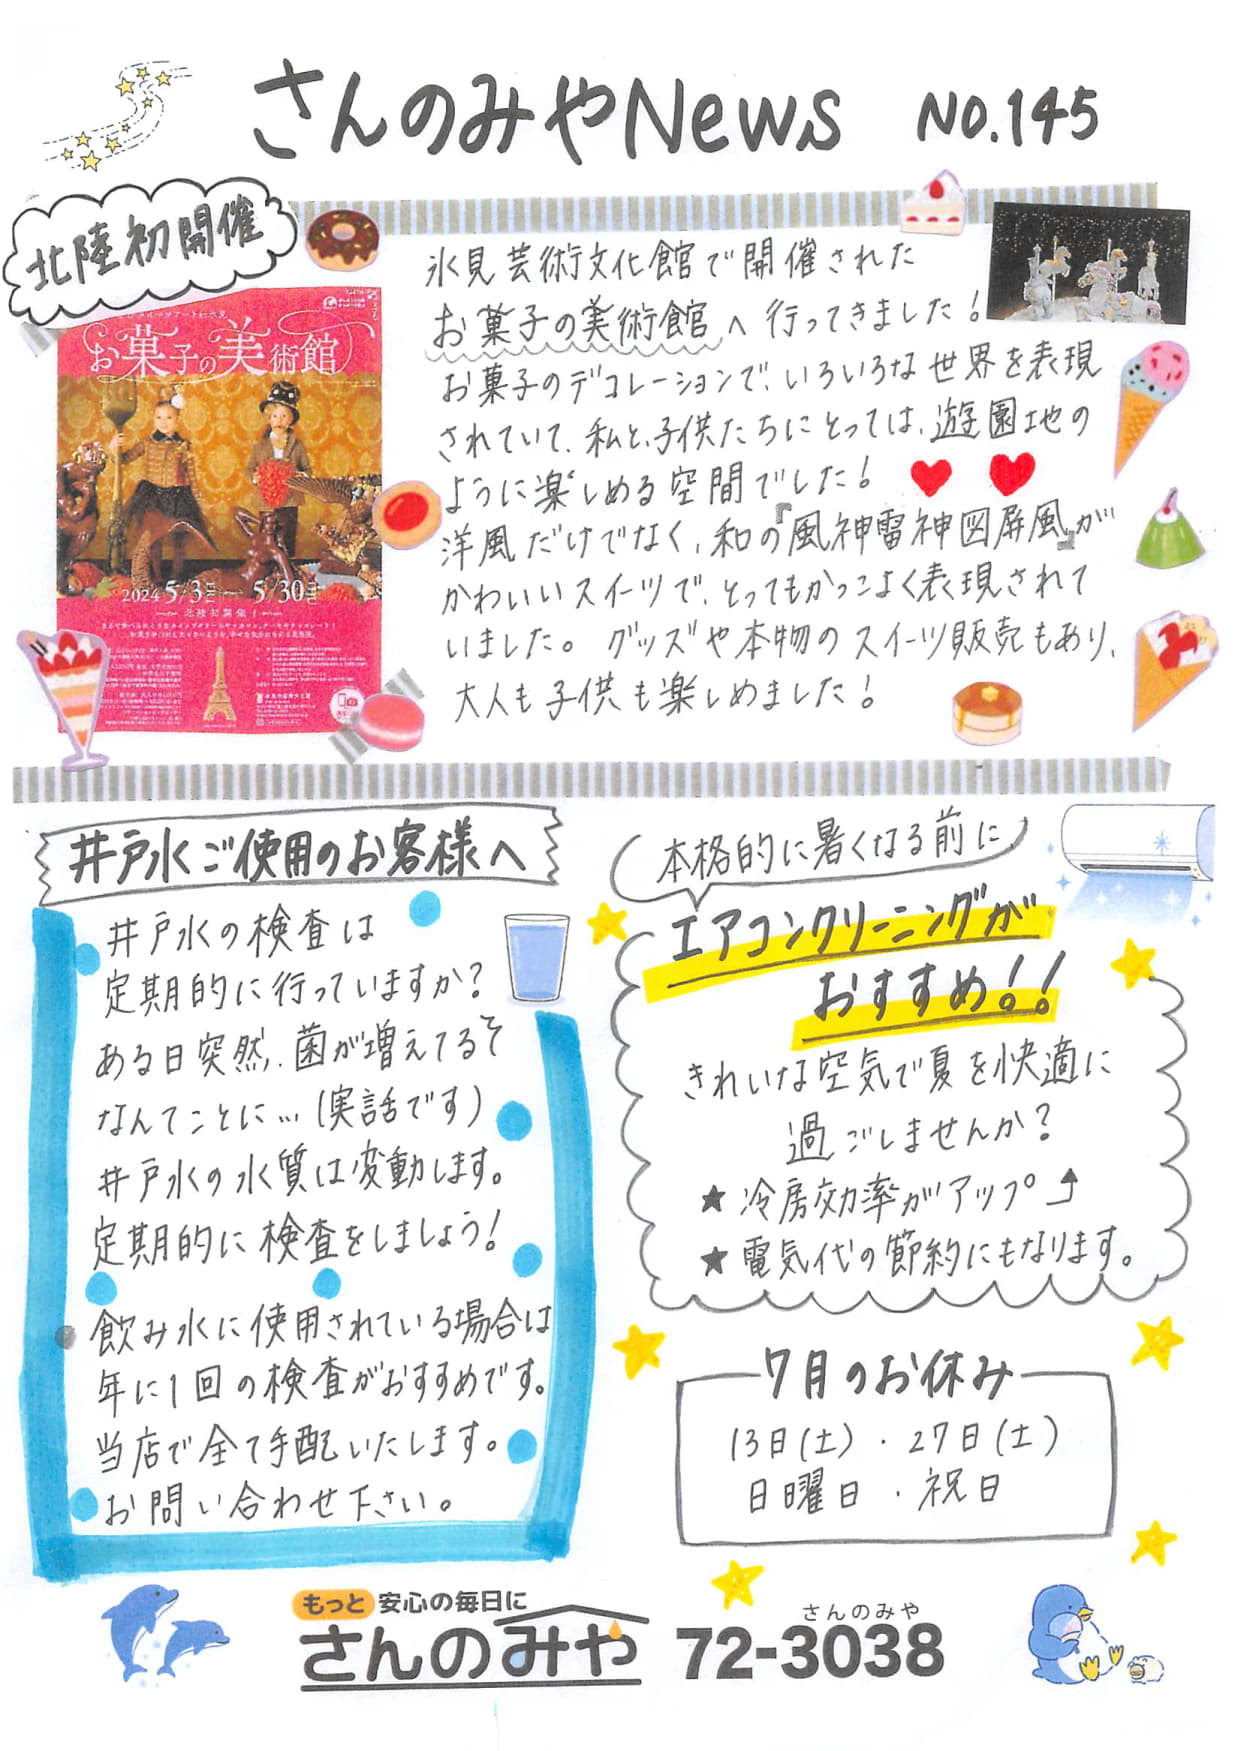 さんのみやNews NO.145
北陸初開催
お菓子の美術館
2024 5/3 5/30
北陸初開催！
氷見芸術文化館で開催された
お菓子の美術館へ行ってきました！
お菓子のデコレーションで、いろいろな世界を表現
されていて、私と、子供たちにとっては、遊園地の
ように楽しめる空間でした！
洋風だけでなく、和の『風神雷神図屏風』が
かわいいスイーツで、とってもかっこよく表現されて
いました。グッズや本物のスイーツ販売もあり、
大人も子供も楽しめました！
井戸水ご使用のお客様へ
井戸水の検査は
定期的に行っていますか？
ある日突然、菌が増えてるぞ
なんてことに…(実話です)
井戸水の水質は変動します。
定期的に検査をしましょう！
飲み水に使用されている場合は
年に1回の検査がおすすめです。
当店で全て手配いたします。
お問い合わせ下さい。
本格的に暑くなる前に
エアコンクリーニングが
おすすめ！！
きれいな空気で夏を快適に
過ごしませんか？
★冷房効率がアップ⤴
★電気代の節約にもなります。
7月のお休み
13日(土)・27日(土)
日曜日・祝日
もっと 安心の毎日に
さんのみや
さんのみや
72-3038